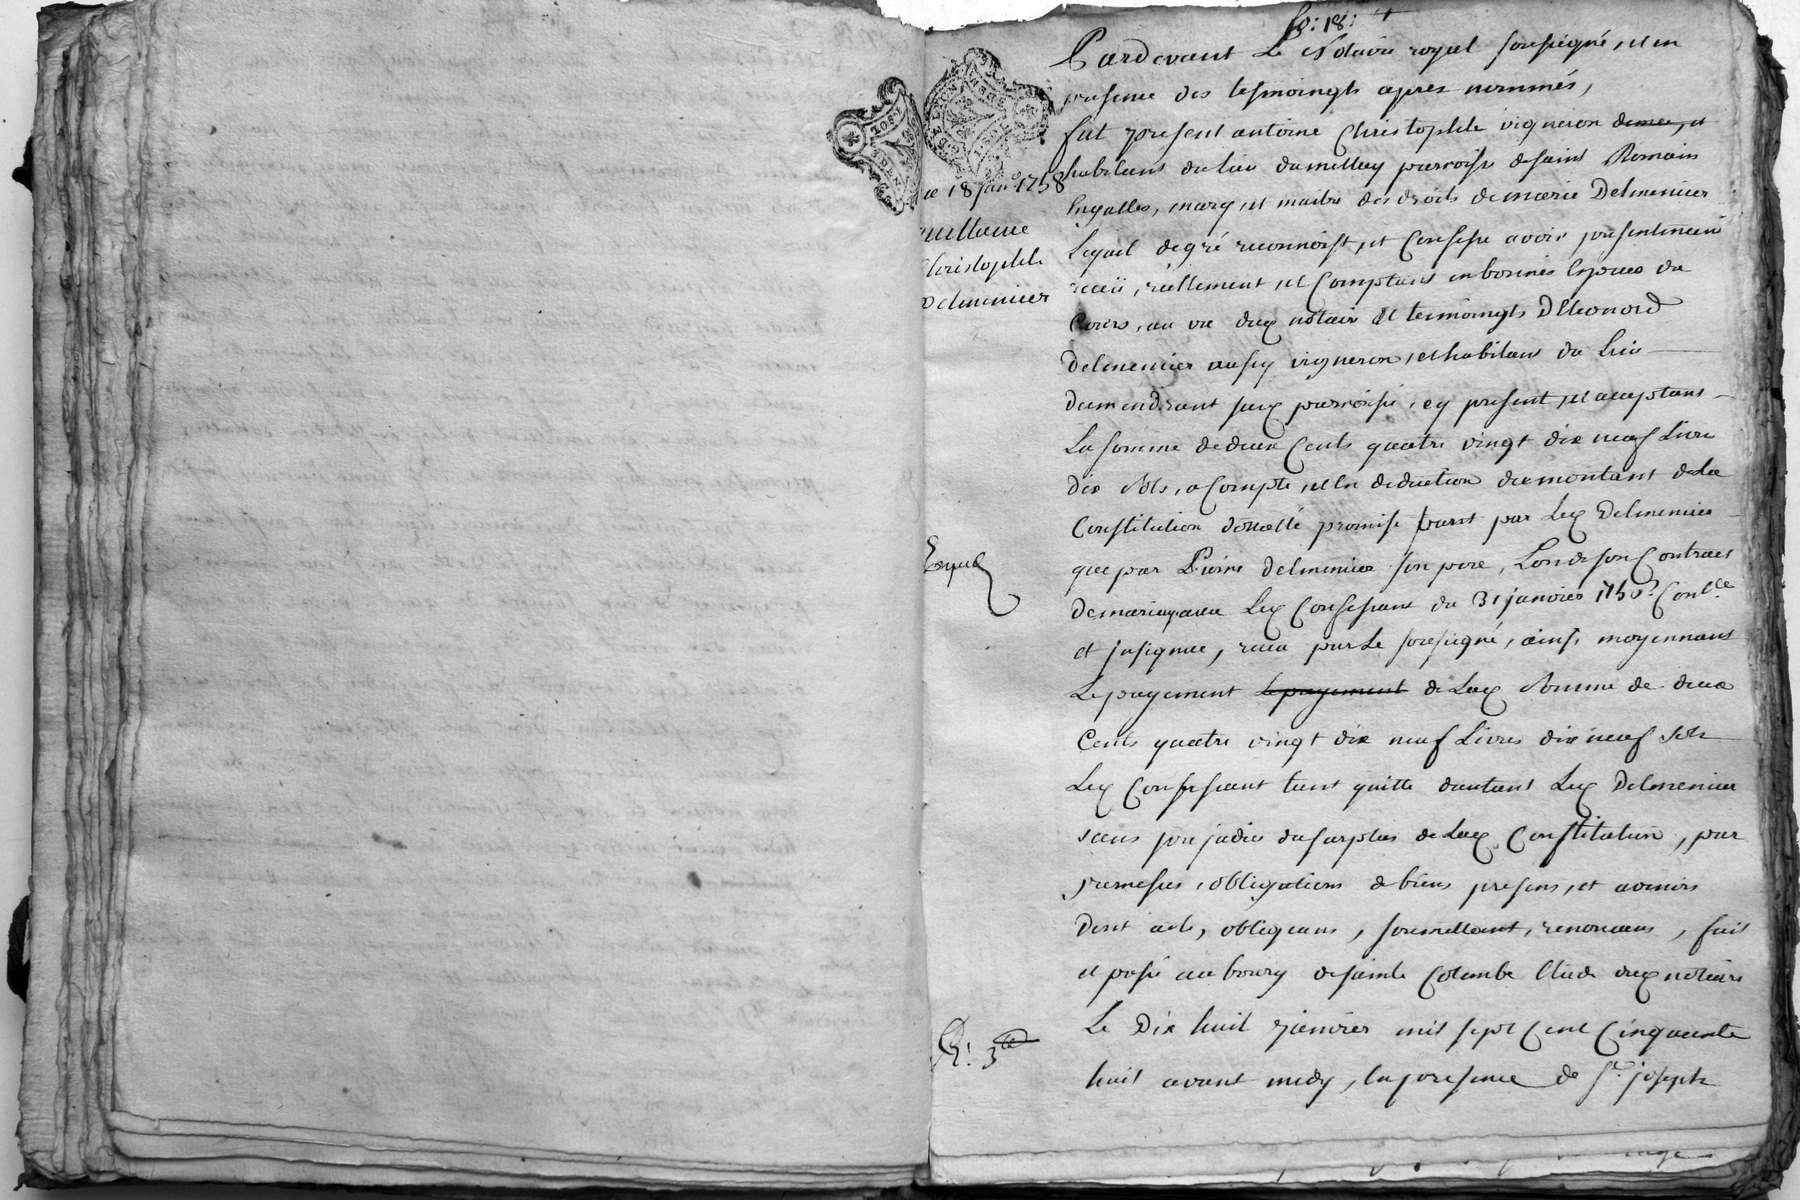 fo: 18:
Pardevant Le Notaire royal soussigné, et en
presence des tesmoingts apres nommés,
fut present antoine Christophle vigneron demeu, et
habitans du lieu du mellay parroisse de saint Romain
mary et maitre des droits de marie Delmenier
Lequel de gré reconnoist, et Confesse avoir presentement
receü, réellement, et Comptans en bonnes Especes de
Cours, au vu dud notaire et tesmoingts D'Eleonord
Delmenier aussy vigneron, et habitans du Lieu
parroisse, cy present, et acceptans
La somme de deux Cents quatre vingt dix neuf Livre
Dix sols, a Compte, et en deduction du montant de La
Constitution dotalle promise tant par Led Delmenier
que par Pierre Delmenier son pere, Lors de son Contract
de mariage avec Led Confessant du 31 janvier Conlle
et Insignué, receu par Le soussigné, ainsi moyennans
Le payement le payement de Lad somme de deux
Cents quatre vingt dix neuf Livres dix neuf sols
Led Confessant tient quitte d'autant Led Delmenier
sans prejudice du surplus de Lad Constitution, par
promesses, obligations de biens presens, et avenirs
Dont acte, obligeans, soumettant, renoncans, fait
et passé au bourg de sainte Colombe Etude dud notaire
Le Dix huit janvier mil sept Cent Cinquante
huit avant midy, En presence de Sr. joseph
18 janr. 1758
quittance
Christophle
Delmenier
Exped
R: 3